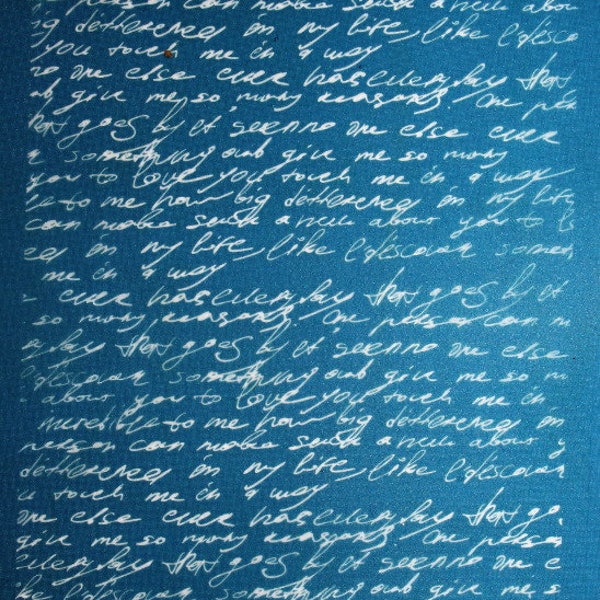 person can make such a new abou
ig differences in my life, like I disco
you touch me in a way
no one else ever has every day that
give me so many reasons One pers
that goes by et seen no one else ever
something give me so many
you to love you touch me in a way
le to me how big differences in my life
can make such a new about you to l
es in my life, like I discover somet
me in a way
ever has every day that goes by et
so many reasons, One person can m
ery day that goes by et seen no one else
discover something give me so m
about you to love you touch me in
incredible to me how big differences in
person can make such a new about y
differences in my life, like I discover
u touch me in a way
one else ever has every day that go
give me so many reasons One person
every day that goes by et seen no one e
ike I discover something give me s